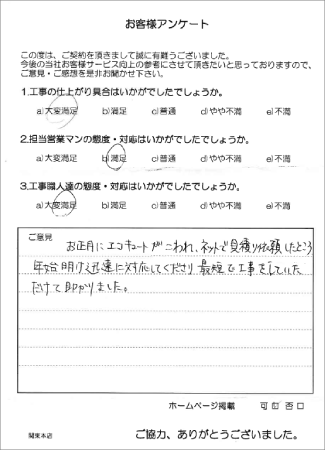 お客様アンケート
この度は、ご契約を頂きまして誠に有難うございました。
今後の当社お客様サービス向上の参考にさせて頂きたいと思っておりますので、
ご意見・ご感想を是非お聞かせ下さい。
1.工事の仕上がり具合はいかがでしたでしょうか。
a)大変満足 b)満足 c)普通 d)やや不満 e)不満
2.担当営業マンの態度・対応はいかがでしたでしょうか。
a)大変満足 b)満足 c)普通 d)やや不満 e)不満
3.工事職人達の態度・対応はいかがでしたでしょうか。
a)大変満足 b)満足 c)普通 d)やや不満 e)不満
ご意見
お正月にエコキュートがこわれ、ネットで見積り依頼したところ
年始明け迅速に対応してくださり 最短で工事をしていた
だけて助かりました。
ホームページ掲載 可□ 否□
関東本店
ご協力、ありがとうございました。